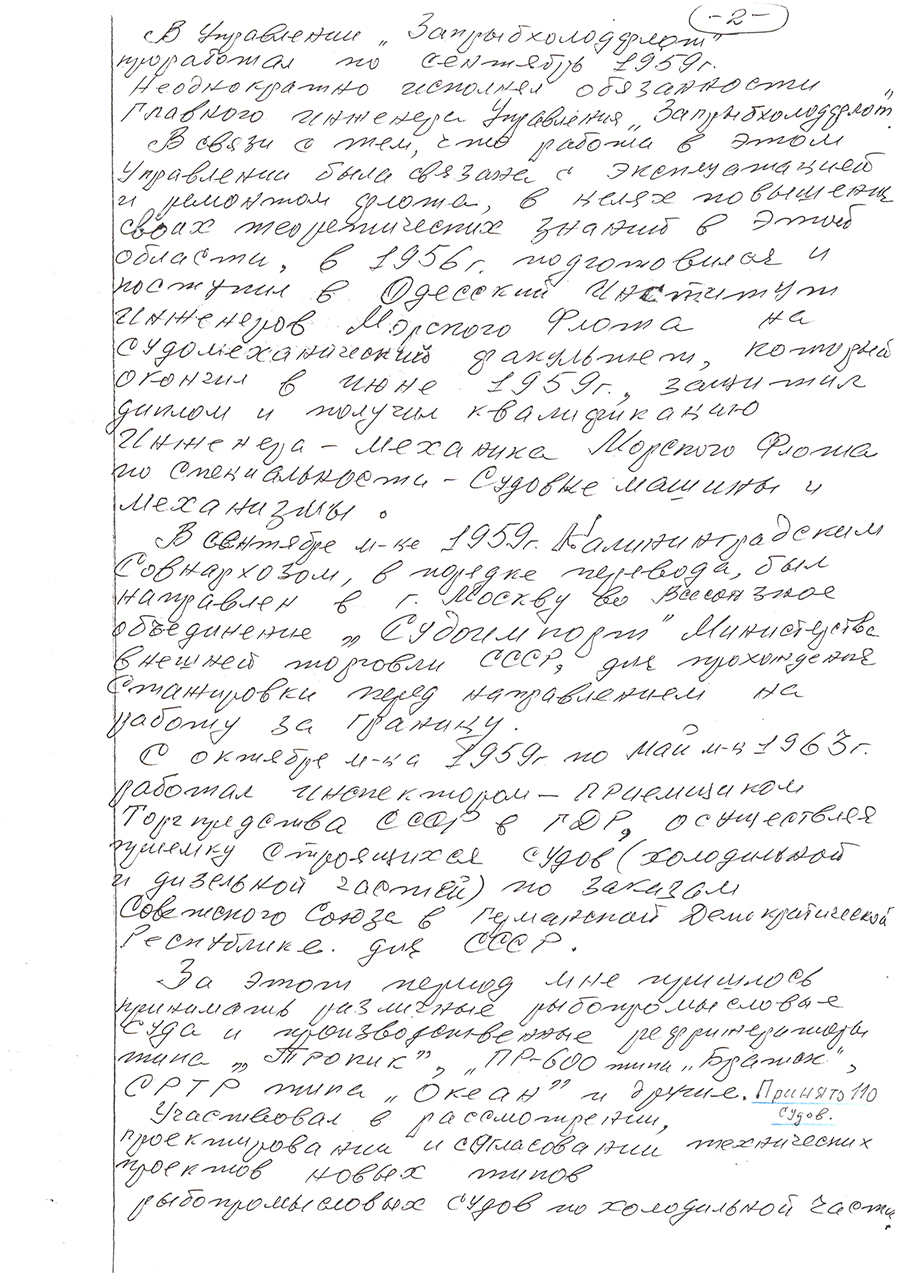 -2-
В Управлении „Запрыбхолодфлот"
проработал по сентябрь 1959г.
Неоднократно исполнял обязанности
Главного инженера Управления „Запрыбхолодфлот".
В связи с тем, что работа в этом
Управлении была связана с эксплуатацией
и ремонтом флота, в целях повышения
своих теоретических знаний в этой
области, в 1956г. подготовился и
поступил в Одесский Институт
Инженеров Морского Флота на
судомеханический факультет, который
окончил в июне 1959г., защитил
диплом и получил квалификацию
Инженера-механика Морского Флота
по специальности - Судовые машины и
механизмы.
В сентябре м-це 1959г. Калининградским
Совнархозом, в порядке перевода, был
направлен в г. Москву во Всесоюзное
объединение „Судоимпорт" Министерства
внешней торговли СССР, для прохождения
стажировки перед направлением на
работу за границу.
С октября м-ца 1959г. по май м-ц 1963г.
работал инспектором-приемщиком
Торгпредства СССР в ГДР, осуществляя
приемку строящихся судов (холодильной
и дизельной частей) по заказам
Советского Союза в Германской Демократической
Республике. для СССР.
За этот период мне пришлось
принимать различные рыбопромысловые
суда и производственные рефрижераторы
типа „Тропик", „ПР-600 типа „Братск",
СРТР типа „Океан" и другие. Принято 110
судов.
Участвовал в рассмотрении,
проектировании и согласовании технических
проектов новых типов
рыбопромысловых судов по холодильной части.